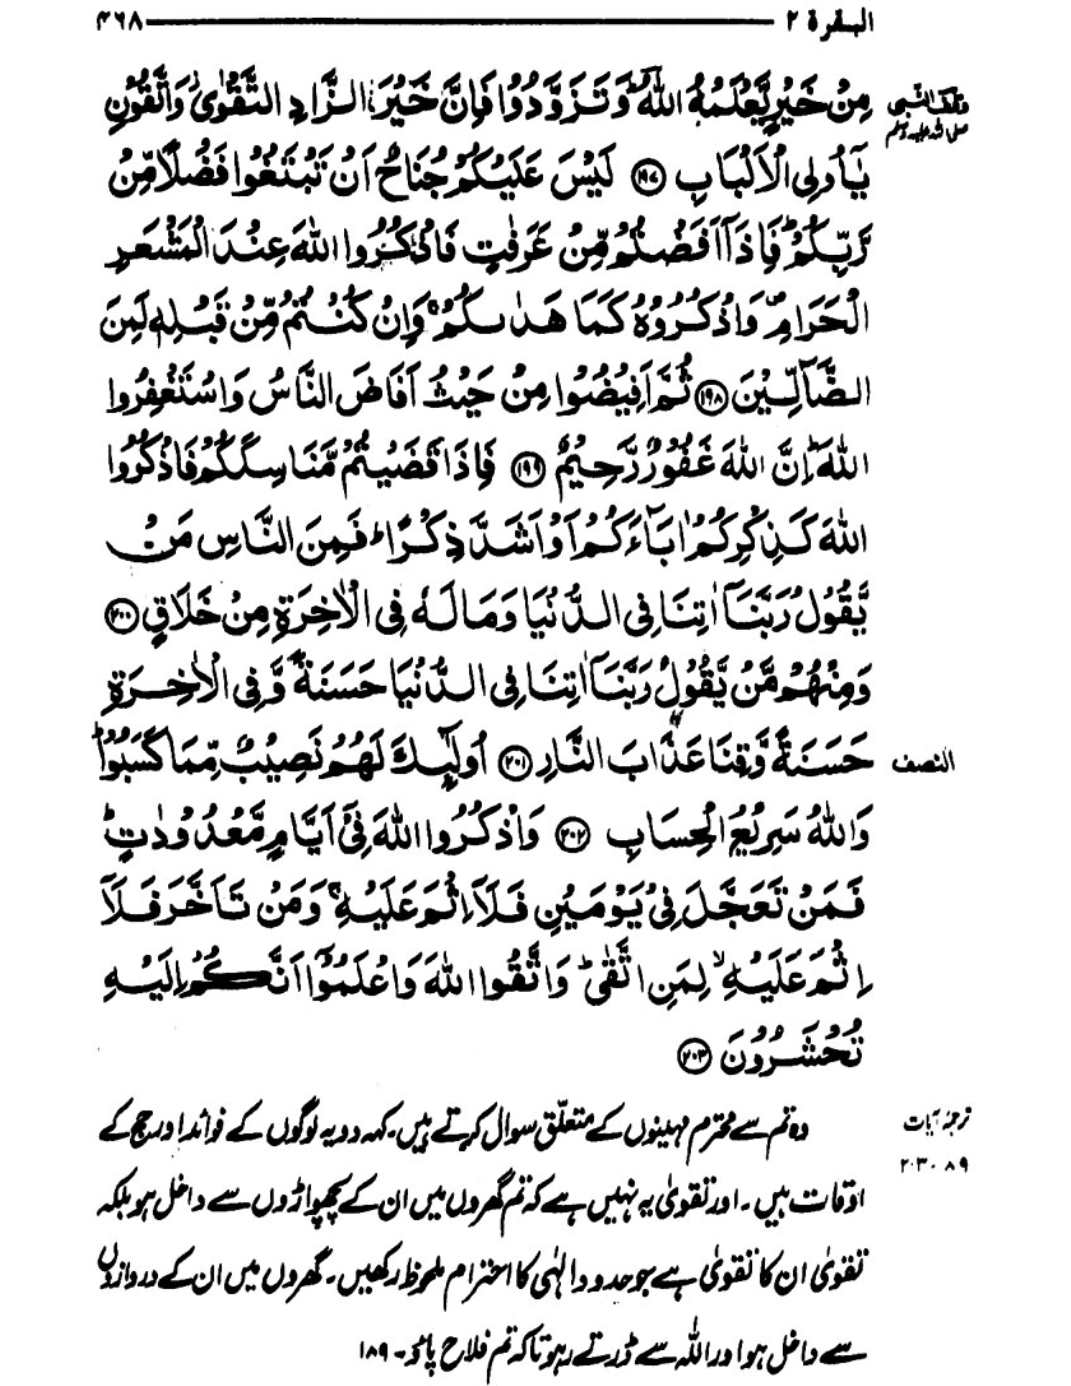 البقرة ۲ ۴۶۸
مِنْ خَيْرٍ يَّعْلَمْهُ اللّٰهُ ؕ وَتَزَوَّدُوْا فَاِنَّ خَيْرَ الزَّادِ التَّقْوٰى ۫ وَاتَّقُوْنِ
وقف النبی صلی اللہ علیہ وسلم
يٰۤاُولِى الْاَلْبَابِ ﴿۱۹۷﴾ لَيْسَ عَلَيْكُمْ جُنَاحٌ اَنْ تَبْتَغُوْا فَضْلًا مِّنْ
رَّبِّكُمْ ؕ فَاِذَاۤ اَفَضْتُمْ مِّنْ عَرَفٰتٍ فَاذْكُرُوا اللّٰهَ عِنْدَ الْمَشْعَرِ
الْحَرَامِ ۪ وَاذْكُرُوْهُ كَمَا هَدٰىكُمْ ۚ وَاِنْ كُنْتُمْ مِّنْ قَبْلِهٖ لَمِنَ
الضَّآلِّيْنَ ﴿۱۹۸﴾ ثُمَّ اَفِيْضُوْا مِنْ حَيْثُ اَفَاضَ النَّاسُ وَاسْتَغْفِرُوا
اللّٰهَ ؕ اِنَّ اللّٰهَ غَفُوْرٌ رَّحِيْمٌ ﴿۱۹۹﴾ فَاِذَا قَضَيْتُمْ مَّنَاسِكَكُمْ فَاذْكُرُوا
اللّٰهَ كَذِكْرِكُمْ اٰبَآءَكُمْ اَوْ اَشَدَّ ذِكْرًا ؕ فَمِنَ النَّاسِ مَنْ
يَّقُوْلُ رَبَّنَاۤ اٰتِنَا فِى الدُّنْيَا وَمَا لَهٗ فِى الْاٰخِرَةِ مِنْ خَلَاقٍ ﴿۲۰۰﴾
وَمِنْهُمْ مَّنْ يَّقُوْلُ رَبَّنَاۤ اٰتِنَا فِى الدُّنْيَا حَسَنَةً وَّفِى الْاٰخِرَةِ
حَسَنَةً وَّقِنَا عَذَابَ النَّارِ ﴿۲۰۱﴾ اُولٰٓئِكَ لَهُمْ نَصِيْبٌ مِّمَّا كَسَبُوْا ؕ
النصف
وَاللّٰهُ سَرِيْعُ الْحِسَابِ ﴿۲۰۲﴾ وَاذْكُرُوا اللّٰهَ فِىْۤ اَيَّامٍ مَّعْدُوْدٰتٍ ؕ
فَمَنْ تَعَجَّلَ فِىْ يَوْمَيْنِ فَلَاۤ اِثْمَ عَلَيْهِ ۚ وَمَنْ تَاَخَّرَ فَلَاۤ
اِثْمَ عَلَيْهِ ۙ لِمَنِ اتَّقٰى ؕ وَاتَّقُوا اللّٰهَ وَاعْلَمُوْۤا اَنَّكُمْ اِلَيْهِ
تُحْشَرُوْنَ ﴿۲۰۳﴾
ترجمۂ آیات
۱۸۹-۲۰۳
وہ تم سے محترم مہینوں کے متعلّق سوال کرتے ہیں۔ کہہ دو یہ لوگوں کے فوائد اور حج کے
اوقات ہیں۔ اور تقویٰ یہ نہیں ہے کہ تم گھروں میں ان کے پچھواڑوں سے داخل ہو بلکہ
تقویٰ ان کا تقویٰ ہے جو حدودِ الٰہی کا احترام ملحوظ رکھیں۔ گھروں میں ان کے دروازوں
سے داخل ہو اور اللّٰہ سے ڈرتے رہو تاکہ تم فلاح پاؤ۔ ۱۸۹